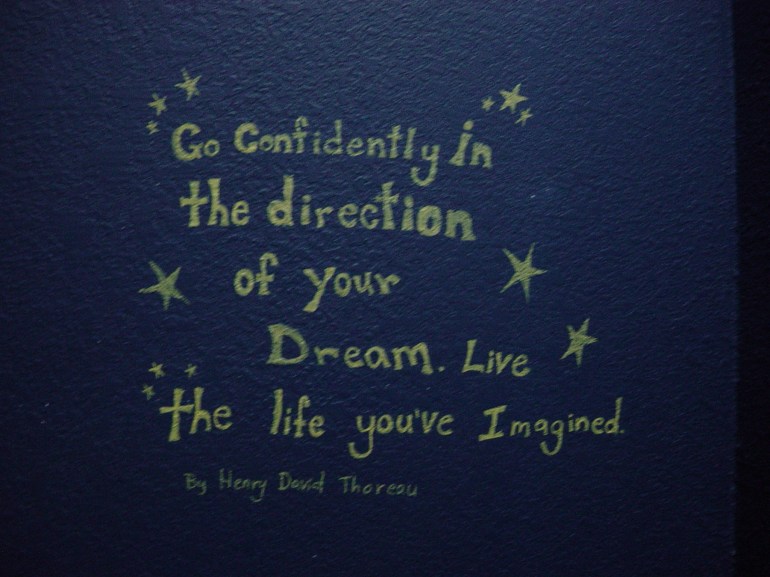 Go Confidently in
the direction
of your
Dream. Live
the life you've Imagined.
By Henry David Thoreau